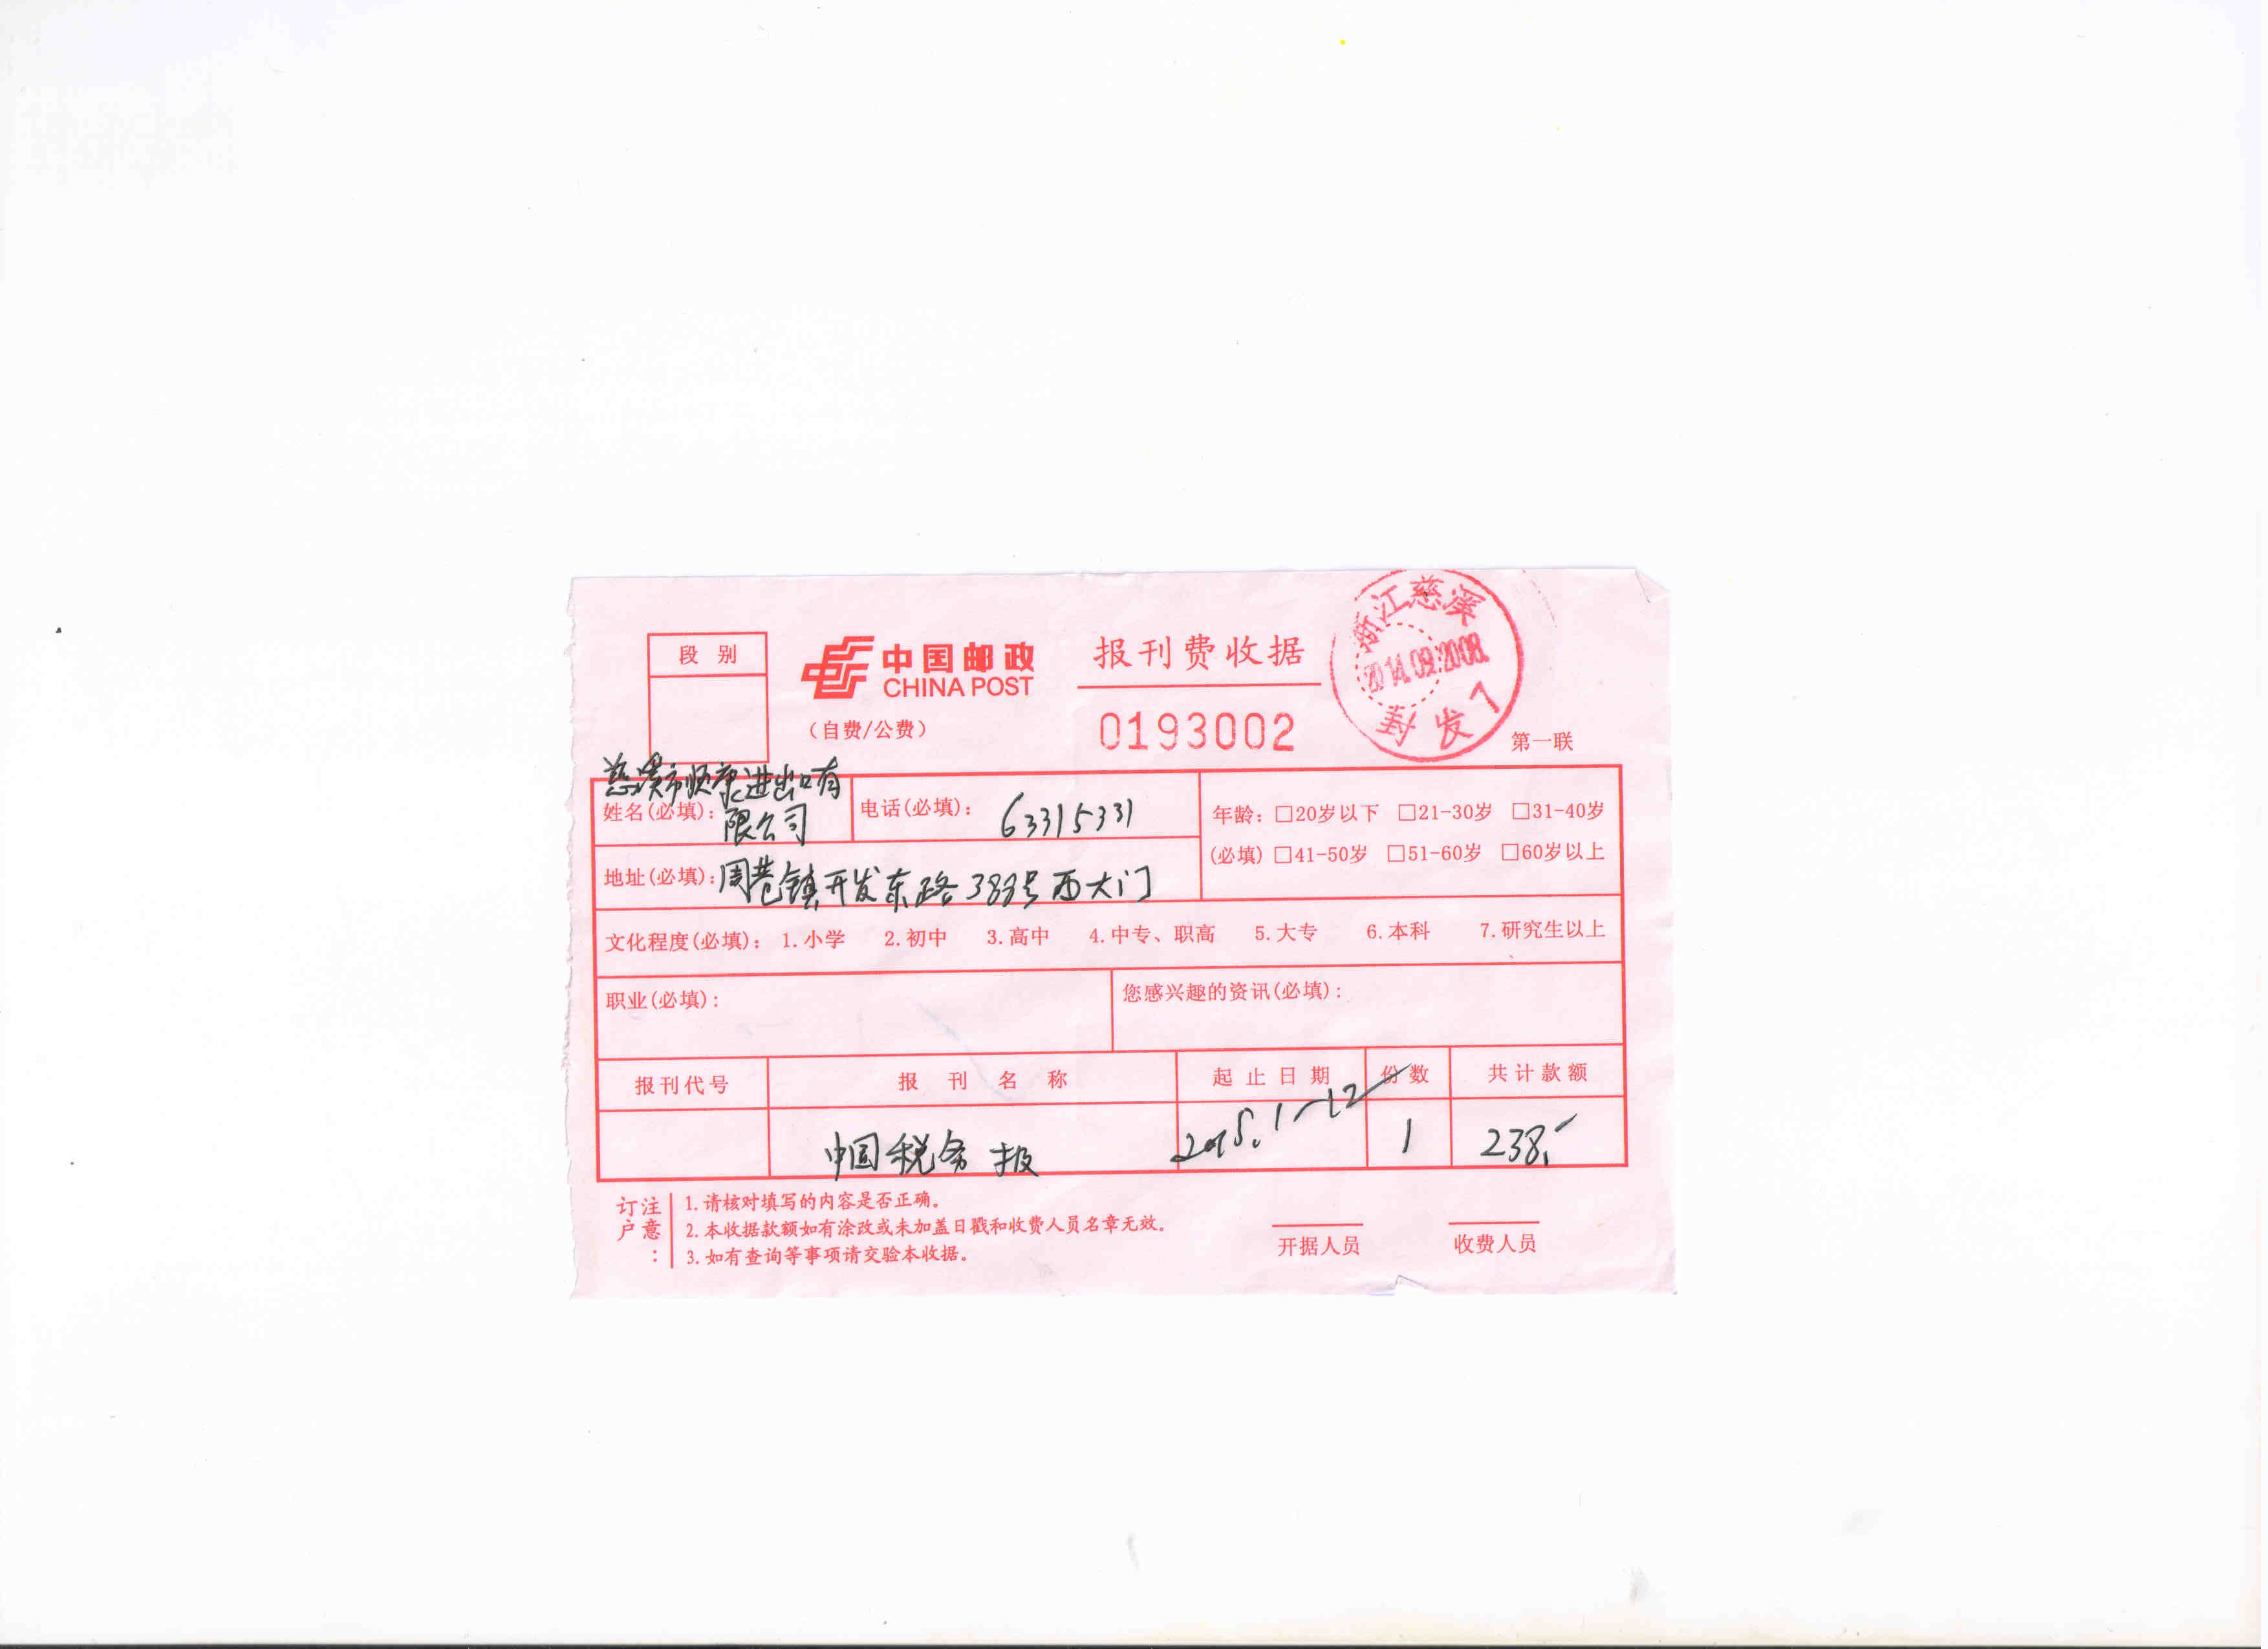 段 别
中国邮政
CHINA POST
(自费/公费)
报刊费收据
0193002
浙江慈溪
2014.09.2008
封发7
第一联
慈溪市顺康进出口有
姓名(必填): 限公司
电话(必填): 63315331
年龄: □20岁以下 □21-30岁 □31-40岁
(必填) □41-50岁 □51-60岁 □60岁以上
地址(必填): 周巷镇开发东路388号西大门
文化程度(必填): 1.小学 2.初中 3.高中 4.中专、职高 5.大专 6.本科 7.研究生以上
职业(必填):
您感兴趣的资讯(必填):
报刊代号 报 刊 名 称 起 止 日 期 份 数 共 计 款 额
中国税务报 2015.1-12 1 238.-
订户注意:
1.请核对填写的内容是否正确。
2.本收据款额如有涂改或未加盖日戳和收费人员名章无效。
3.如有查询等事项请交验本收据。
开据人员
收费人员